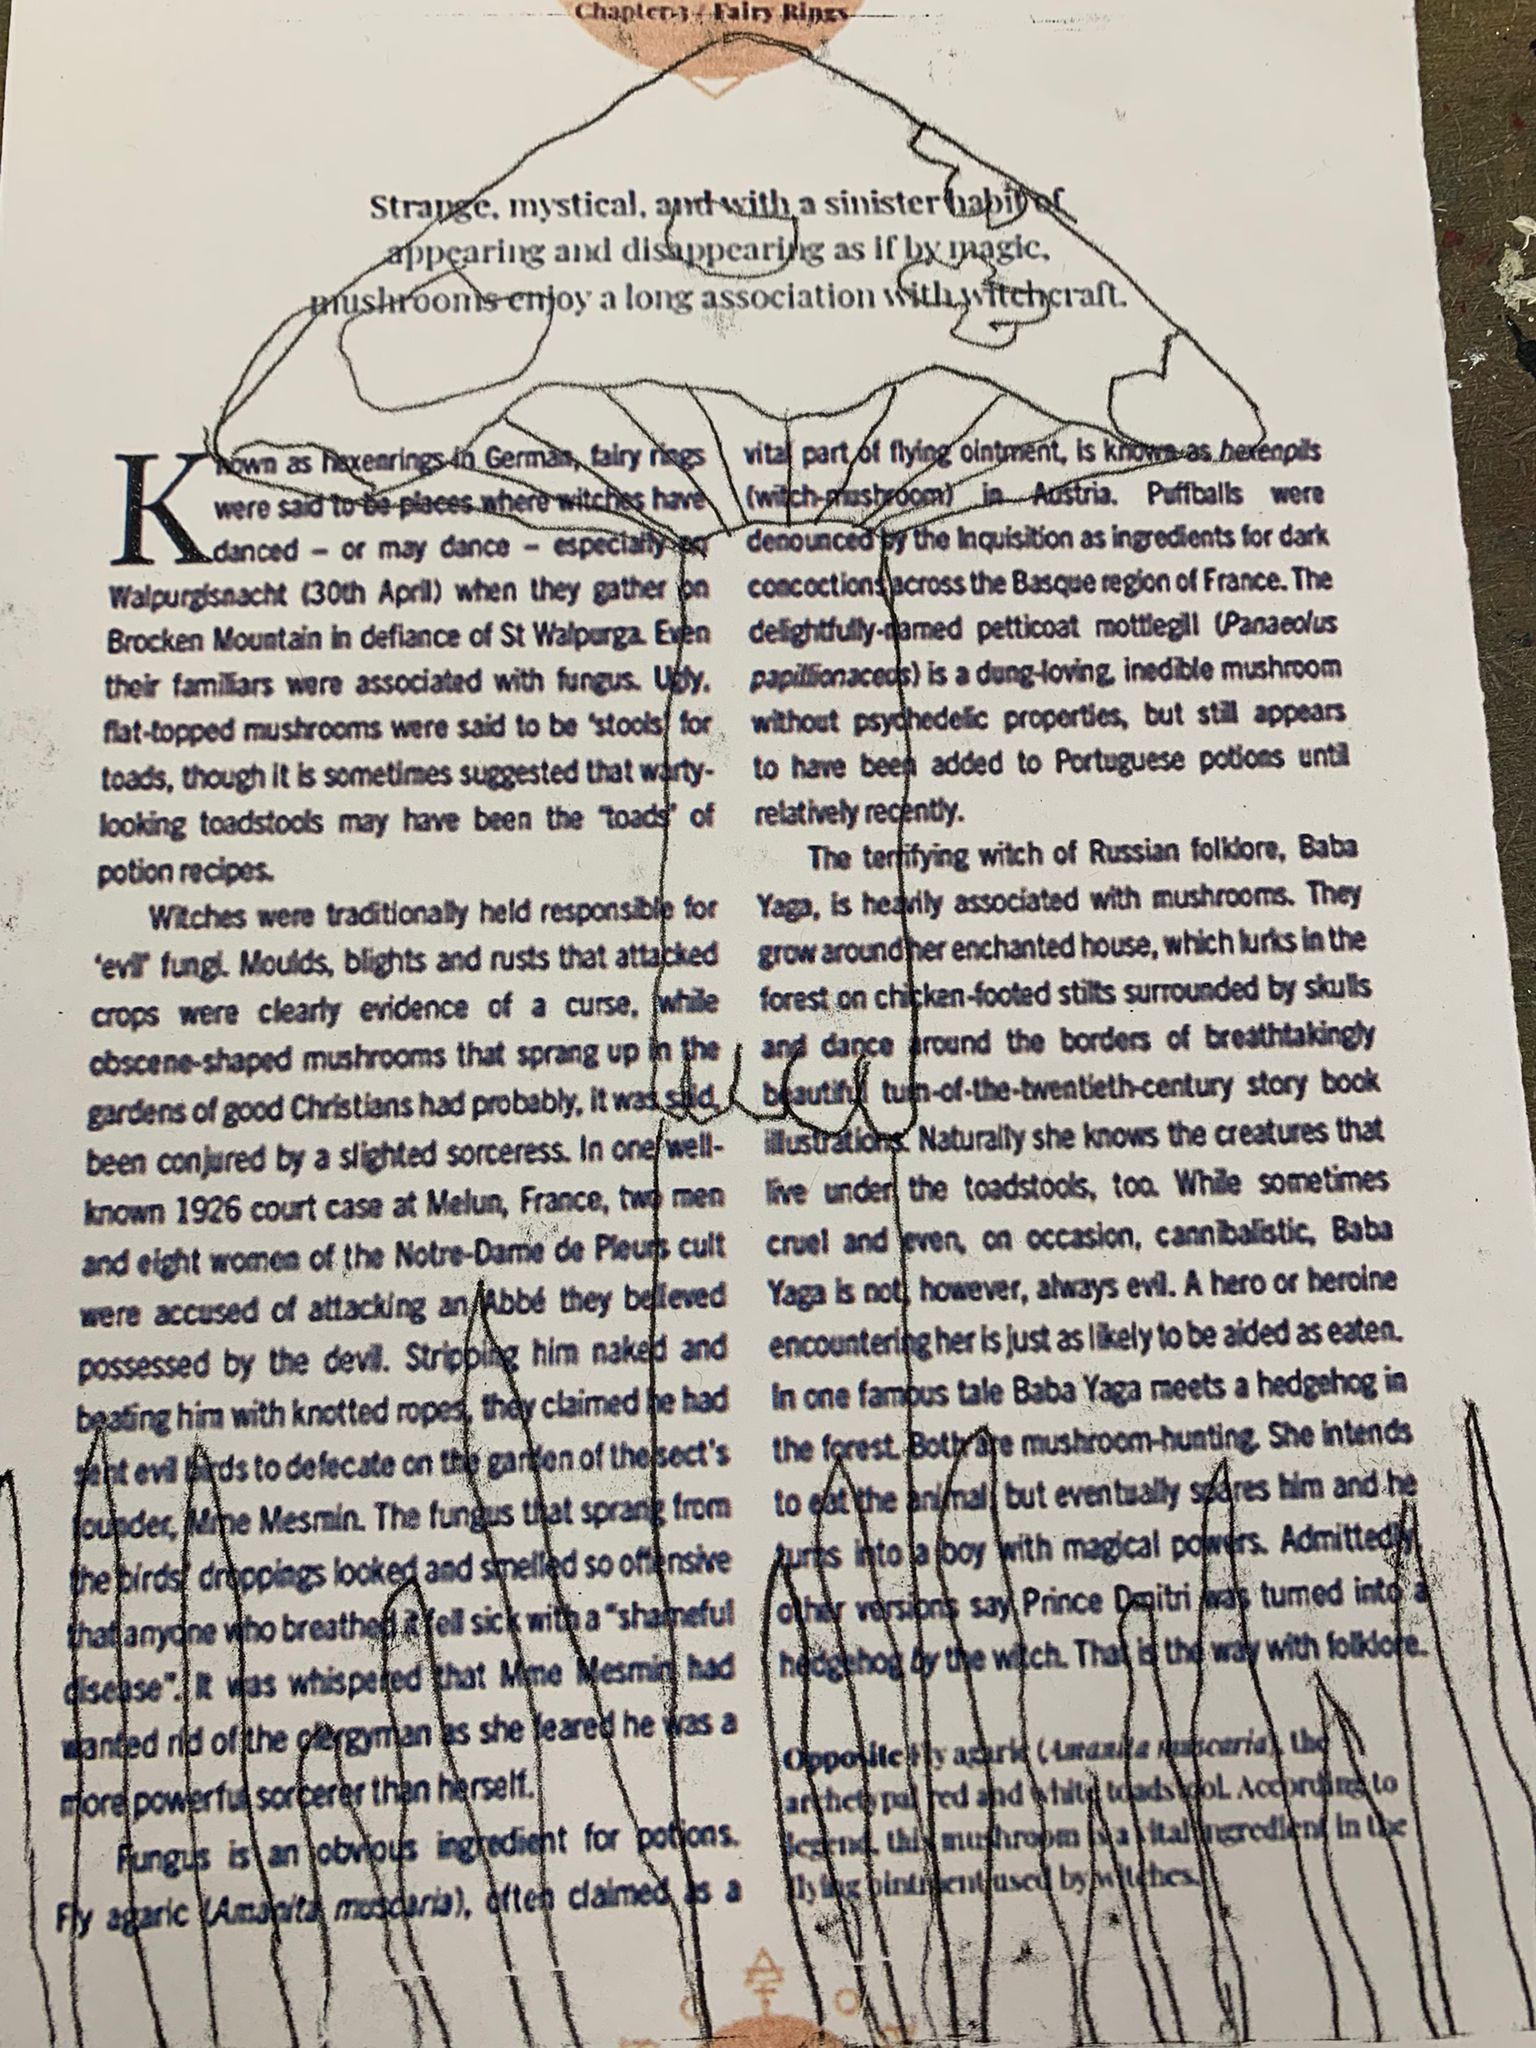 Chapter 3 / Fairy Rings
Strange, mystical, and with a sinister habit of
appearing and disappearing as if by magic,
mushrooms enjoy a long association with witchcraft.
Known as hexenrings in German, fairy rings
were said to be places where witches have
danced – or may dance – especially on
Walpurgisnacht (30th April) when they gather on
Brocken Mountain in defiance of St Walpurga. Even
their familiars were associated with fungus. Ugly,
flat-topped mushrooms were said to be 'stools' for
toads, though it is sometimes suggested that warty-
looking toadstools may have been the 'toads' of
potion recipes.
Witches were traditionally held responsible for
'evil' fungi. Moulds, blights and rusts that attacked
crops were clearly evidence of a curse, while
obscene-shaped mushrooms that sprang up in the
gardens of good Christians had probably, it was said,
been conjured by a slighted sorceress. In one well-
known 1926 court case at Melun, France, two men
and eight women of the Notre-Dame de Pleurs cult
were accused of attacking an Abbé they believed
possessed by the devil. Stripping him naked and
beating him with knotted ropes, they claimed he had
sent evil birds to defecate on the garden of the sect's
founder, Mme Mesmin. The fungus that sprang from
the birds' droppings looked and smelled so offensive
that anyone who breathed it fell sick with a "shameful
disease". It was whispered that Mme Mesmin had
wanted rid of the clergyman as she feared he was a
more powerful sorcerer than herself.
Fungus is an obvious ingredient for potions.
Fly agaric (Amanita muscaria), often claimed as a
vital part of flying ointment, is known as hexenpils
(witch-mushroom) in Austria. Puffballs were
denounced by the Inquisition as ingredients for dark
concoctions across the Basque region of France. The
delightfully-named petticoat mottlegill (Panaeolus
papillionaceus) is a dung-loving, inedible mushroom
without psychedelic properties, but still appears
to have been added to Portuguese potions until
relatively recently.
The terrifying witch of Russian folklore, Baba
Yaga, is heavily associated with mushrooms. They
grow around her enchanted house, which lurks in the
forest on chicken-footed stilts surrounded by skulls
and dance around the borders of breathtakingly
beautiful turn-of-the-twentieth-century story book
illustrations. Naturally she knows the creatures that
live under the toadstools, too. While sometimes
cruel and even, on occasion, cannibalistic, Baba
Yaga is not, however, always evil. A hero or heroine
encountering her is just as likely to be aided as eaten.
In one famous tale Baba Yaga meets a hedgehog in
the forest. Both are mushroom-hunting. She intends
to eat the animal, but eventually spares him and he
turns into a boy with magical powers. Admittedly
other versions say Prince Dmitri was turned into a
hedgehog by the witch. That is the way with folklore.
Opposite Fly agaric (Amanita muscaria), the
archetypal red and white toadstool. According to
legend, this mushroom is a vital ingredient in the
flying ointment used by witches.